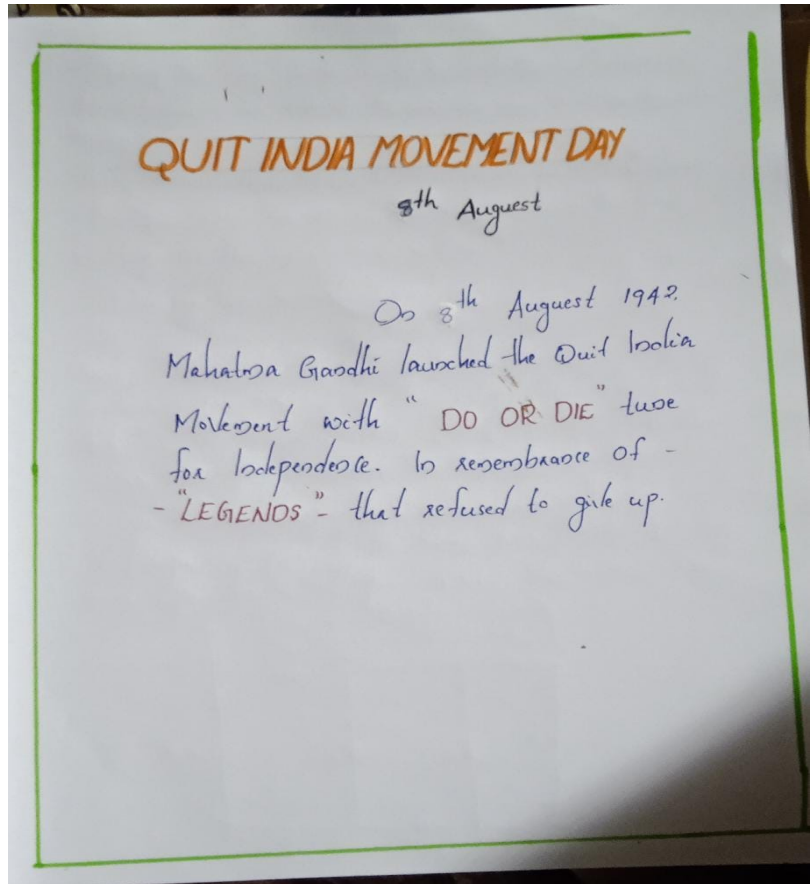 QUIT INDIA MOVEMENT DAY
8th Auguest
On 8th Auguest 1942.
Mahatma Gandhi launched the Quit India
Movement with " DO OR DIE " tune
for Independence. In remembrance of -
- "LEGENDS" - that refused to give up.